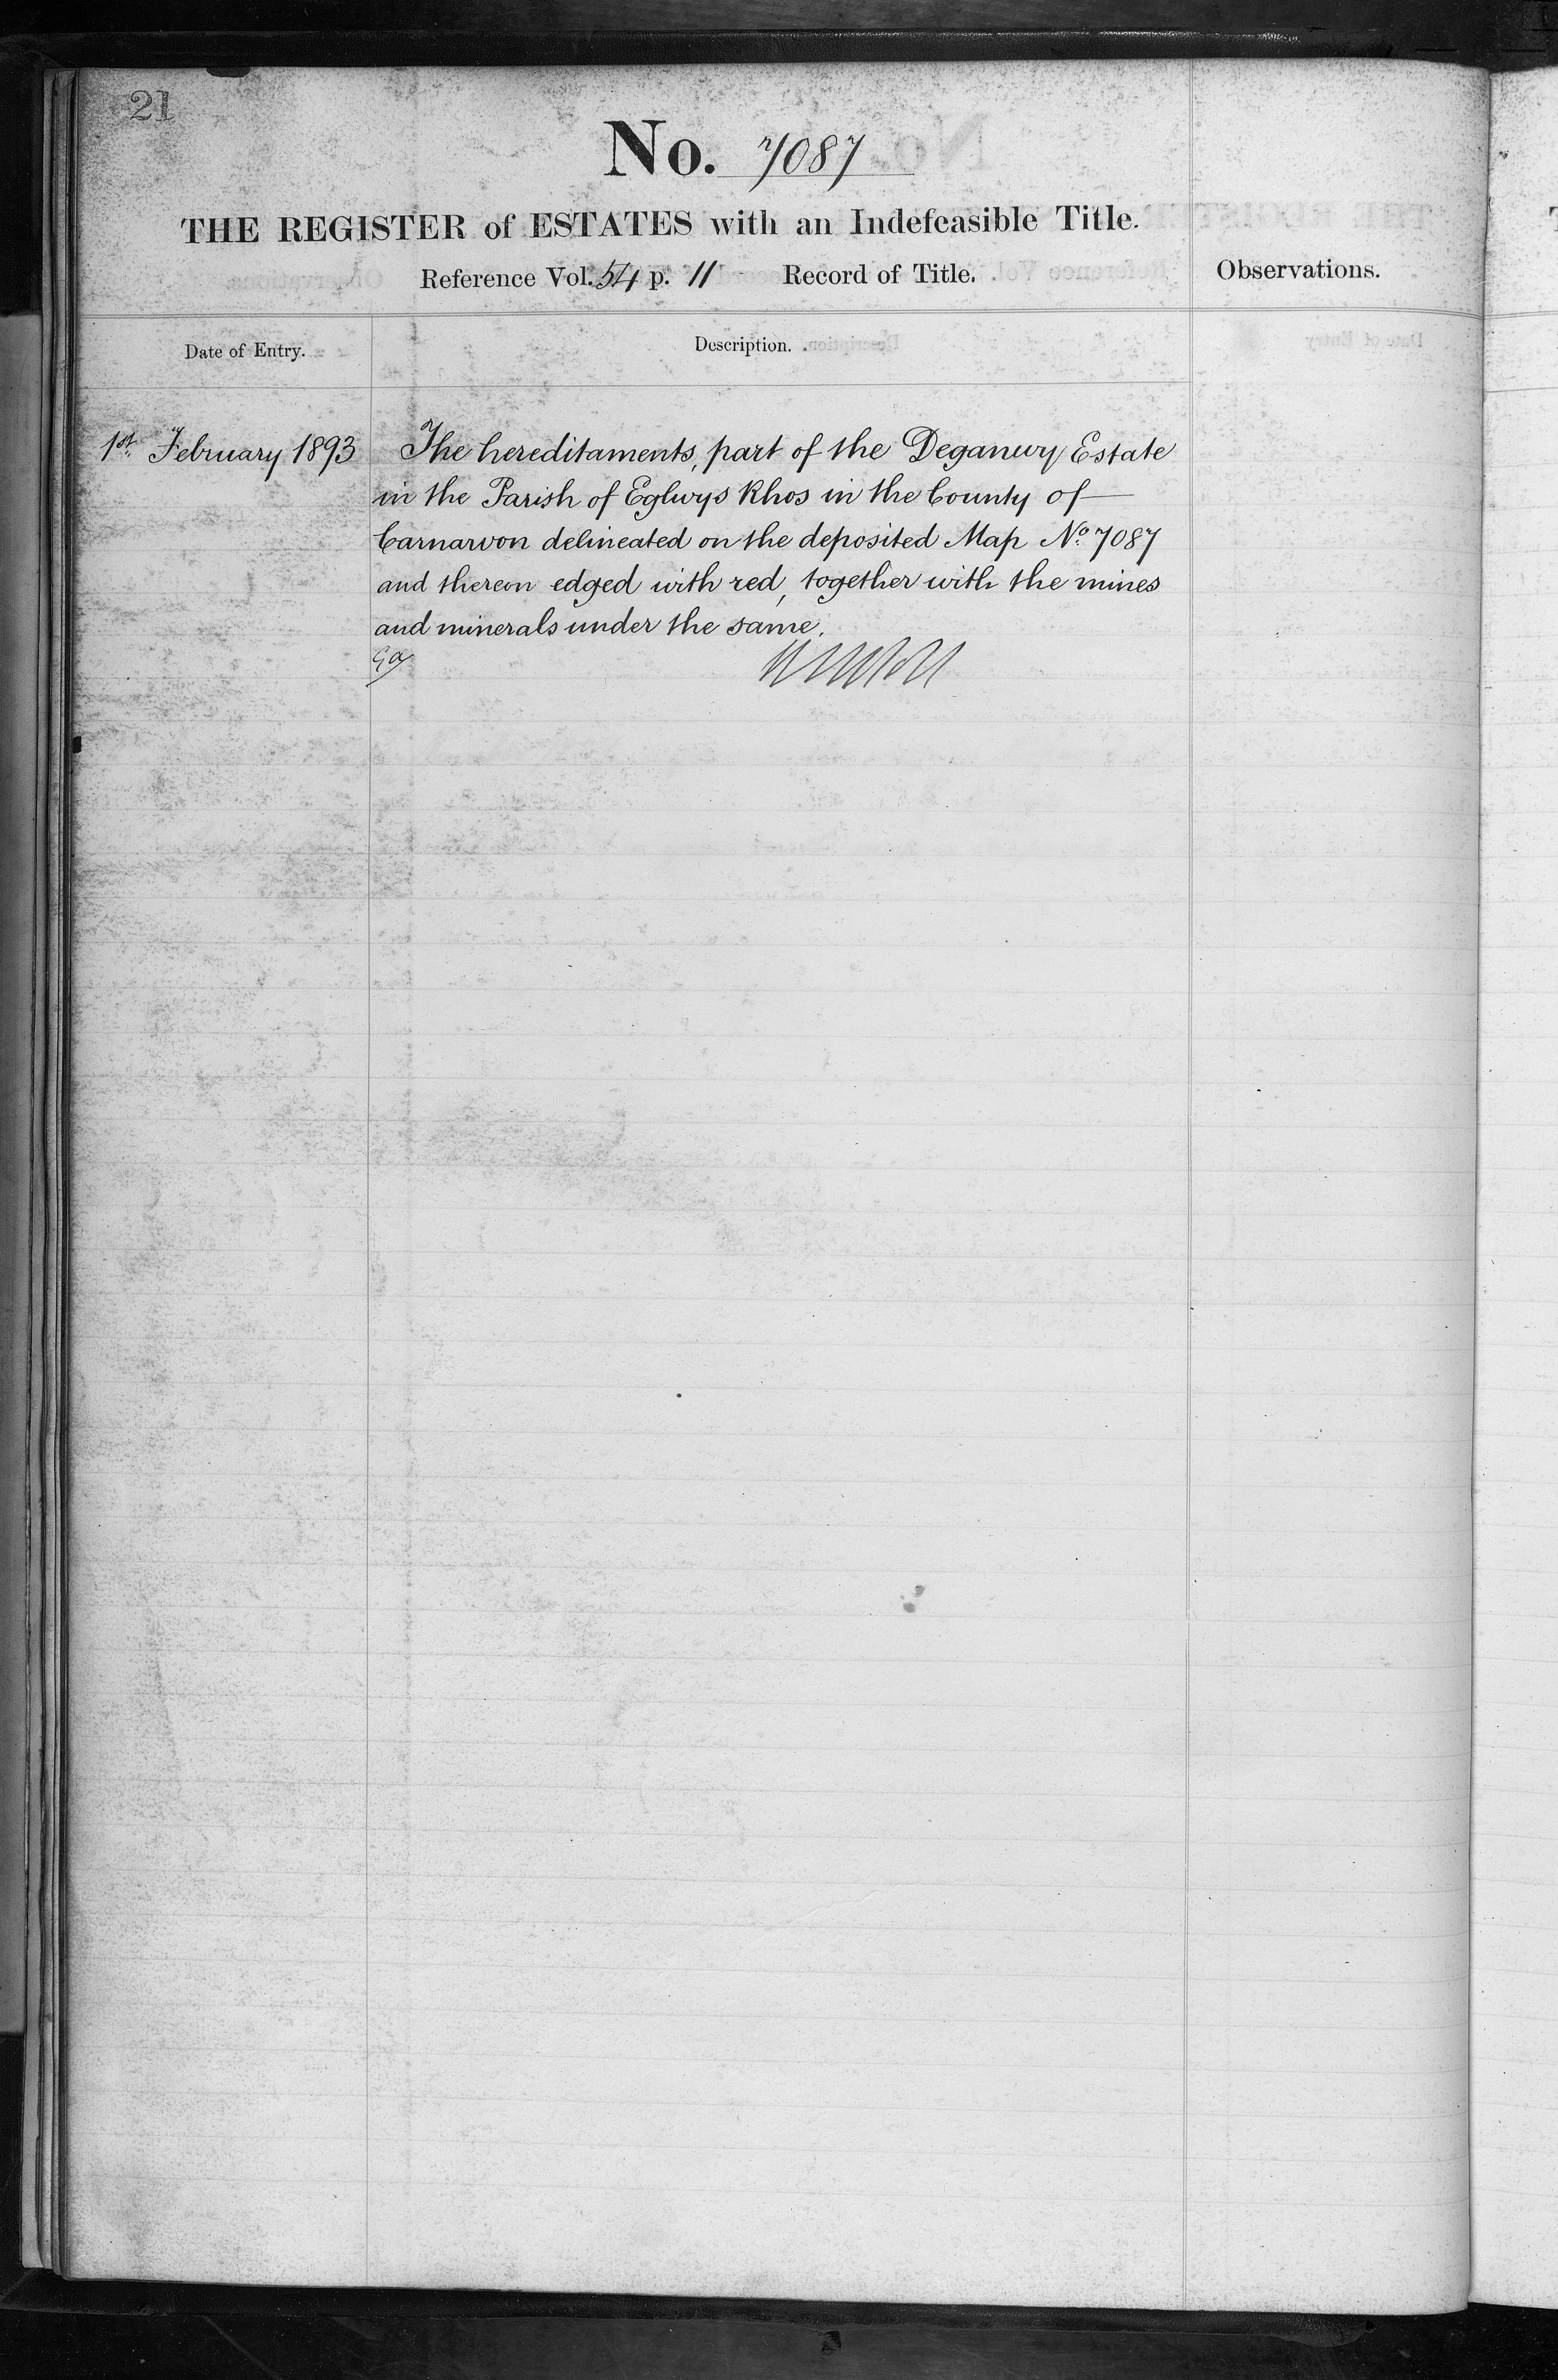 21
No. 7087
THE REGISTER of ESTATES with an Indefeasible Title.
Reference Vol. 54 p. 11 Record of Title.
Observations.
Date of Entry.
Description.
1st February 1893
The hereditaments, part of the Deganwy Estate
in the Parish of Eglwys Rhos in the County of
Carnarvon delineated on the deposited Map No. 7087
and thereon edged with red, together with the mines
and minerals under the same.